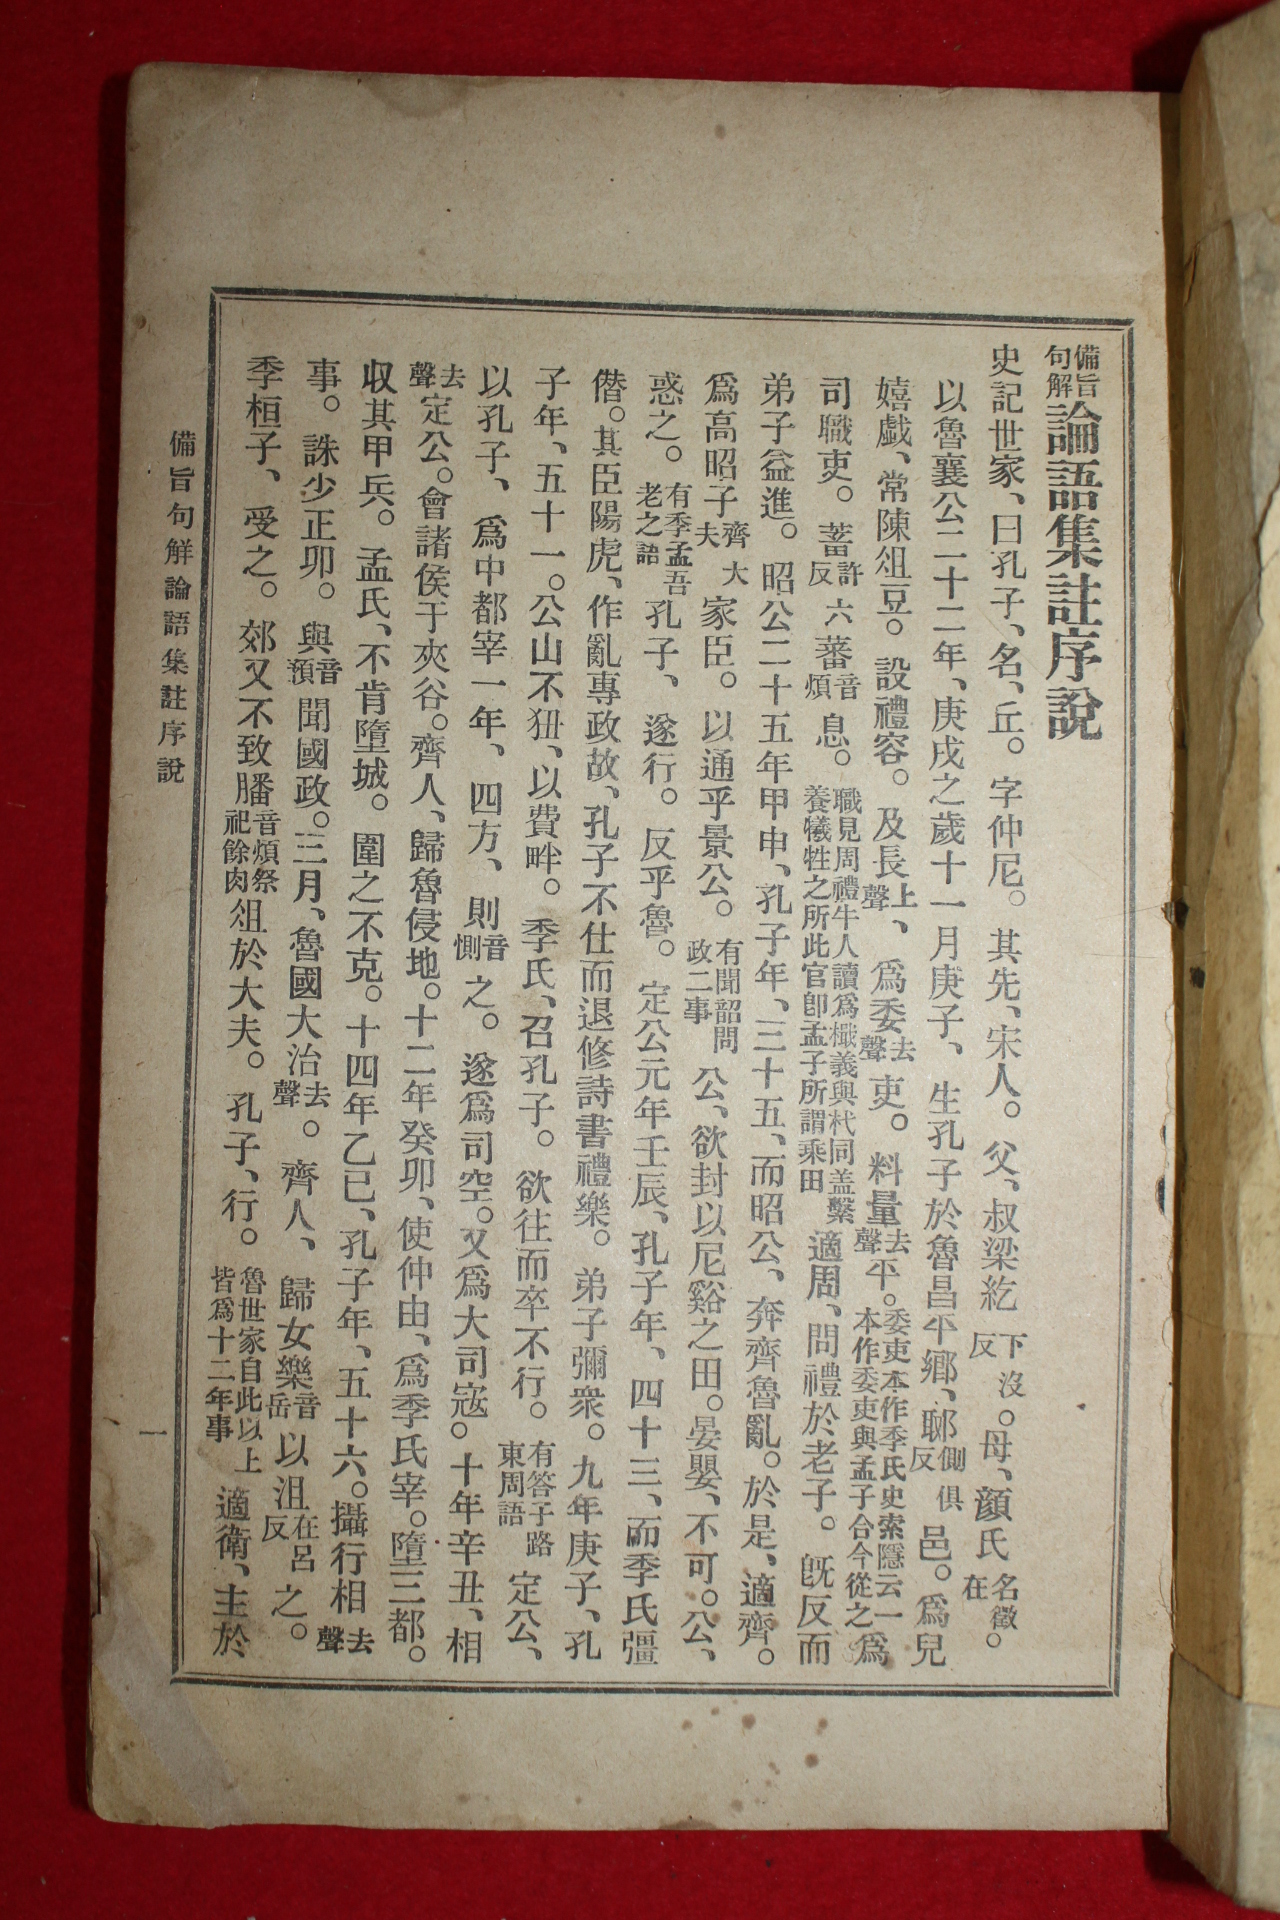 備旨句解論語集註序說
史記世家、曰孔子、名、丘。字仲尼。其先、宋人。父、叔梁紇下沒反。母、顔氏名徵在。
以魯襄公二十二年、庚戌之歲十一月庚子、生孔子於魯昌平鄕、郰側俱反邑。爲兒
嬉戱、常陳俎豆。設禮容。及長上聲、爲委去聲吏。料量去聲平。委吏本作季氏史索隱云一本作委吏與孟子合今從之爲
司職吏。蓄許六反蕃音煩息。職見周禮牛人讀爲樴義與杙同盖繫養犧牲之所此官卽孟子所謂乘田適周、問禮於老子。旣反而
弟子益進。昭公二十五年甲申、孔子年、三十五、而昭公、奔齊魯亂。於是、適齊。
爲高昭子齊大夫家臣。以通乎景公。有聞韶問政二事公、欲封以尼谿之田。晏嬰、不可。公、
惑之。有季孟吾老之語孔子、遂行。反乎魯。定公元年壬辰、孔子年、四十三、而季氏彊
僭。其臣陽虎、作亂專政故、孔子不仕而退修詩書禮樂。弟子彌衆。九年庚子、孔
子年、五十一。公山不狃、以費畔。季氏、召孔子。欲往而卒不行。有答子路東周語定公、
以孔子、爲中都宰一年、四方、則音惻之。遂爲司空。又爲大司寇。十年辛丑、相
去聲定公。會諸侯于夾谷。齊人、歸魯侵地。十二年癸卯、使仲由、爲季氏宰。墮三都。
収其甲兵。孟氏、不肯墮城。圍之不克。十四年乙巳、孔子年、五十六。攝行相去聲
事。誅少正卯。與音預聞國政。三月、魯國大治去聲。齊人、歸女樂音岳以沮在呂反之。
季桓子、受之。郊又不致膰音煩祭祀餘肉俎於大夫。孔子、行。魯世家自此以上皆爲十二年事適衛、主於
備旨句解論語集註序說
一